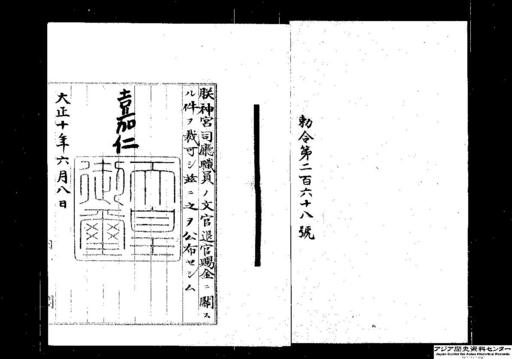 勅令第二百六十八號
朕神宮司廳職員ノ文官退官賜金ニ關ス
ル件ヲ裁可シ玆ニ之ヲ公布セシム
嘉仁
天皇
御璽
大正十年六月八日
アジア歴史資料センター
Japan Center for Asian Historical Records